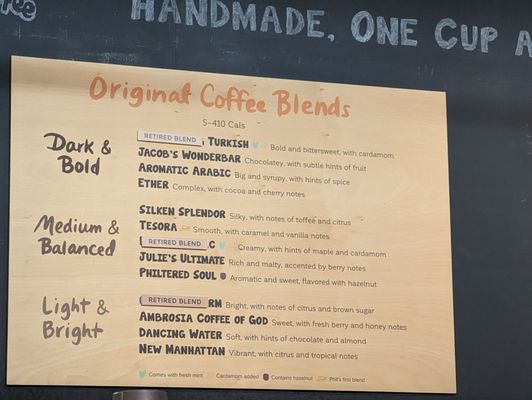 HANDMADE, ONE CUP A
Original Coffee Blends
5-410 Cals
Dark & Bold
RETIRED BLEND TURKISH Bold and bittersweet, with cardamom
JACOB'S WONDERBAR Chocolatey, with subtle hints of fruit
AROMATIC ARABIC Big and syrupy, with hints of spice
ETHER Complex, with cocoa and cherry notes
Medium & Balanced
SILKEN SPLENDOR Silky, with notes of toffee and citrus
TESORA Smooth, with caramel and vanilla notes
RETIRED BLEND C Creamy, with hints of maple and cardamom
JULIE'S ULTIMATE Rich and malty, accented by berry notes
PHILTERED SOUL Aromatic and sweet, flavored with hazelnut
Light & Bright
RETIRED BLEND RM Bright, with notes of citrus and brown sugar
AMBROSIA COFFEE OF GOD Sweet, with fresh berry and honey notes
DANCING WATER Soft, with hints of chocolate and almond
NEW MANHATTAN Vibrant, with citrus and tropical notes
Comes with fresh mint Cardamom added Contains hazelnut Phil's first blend